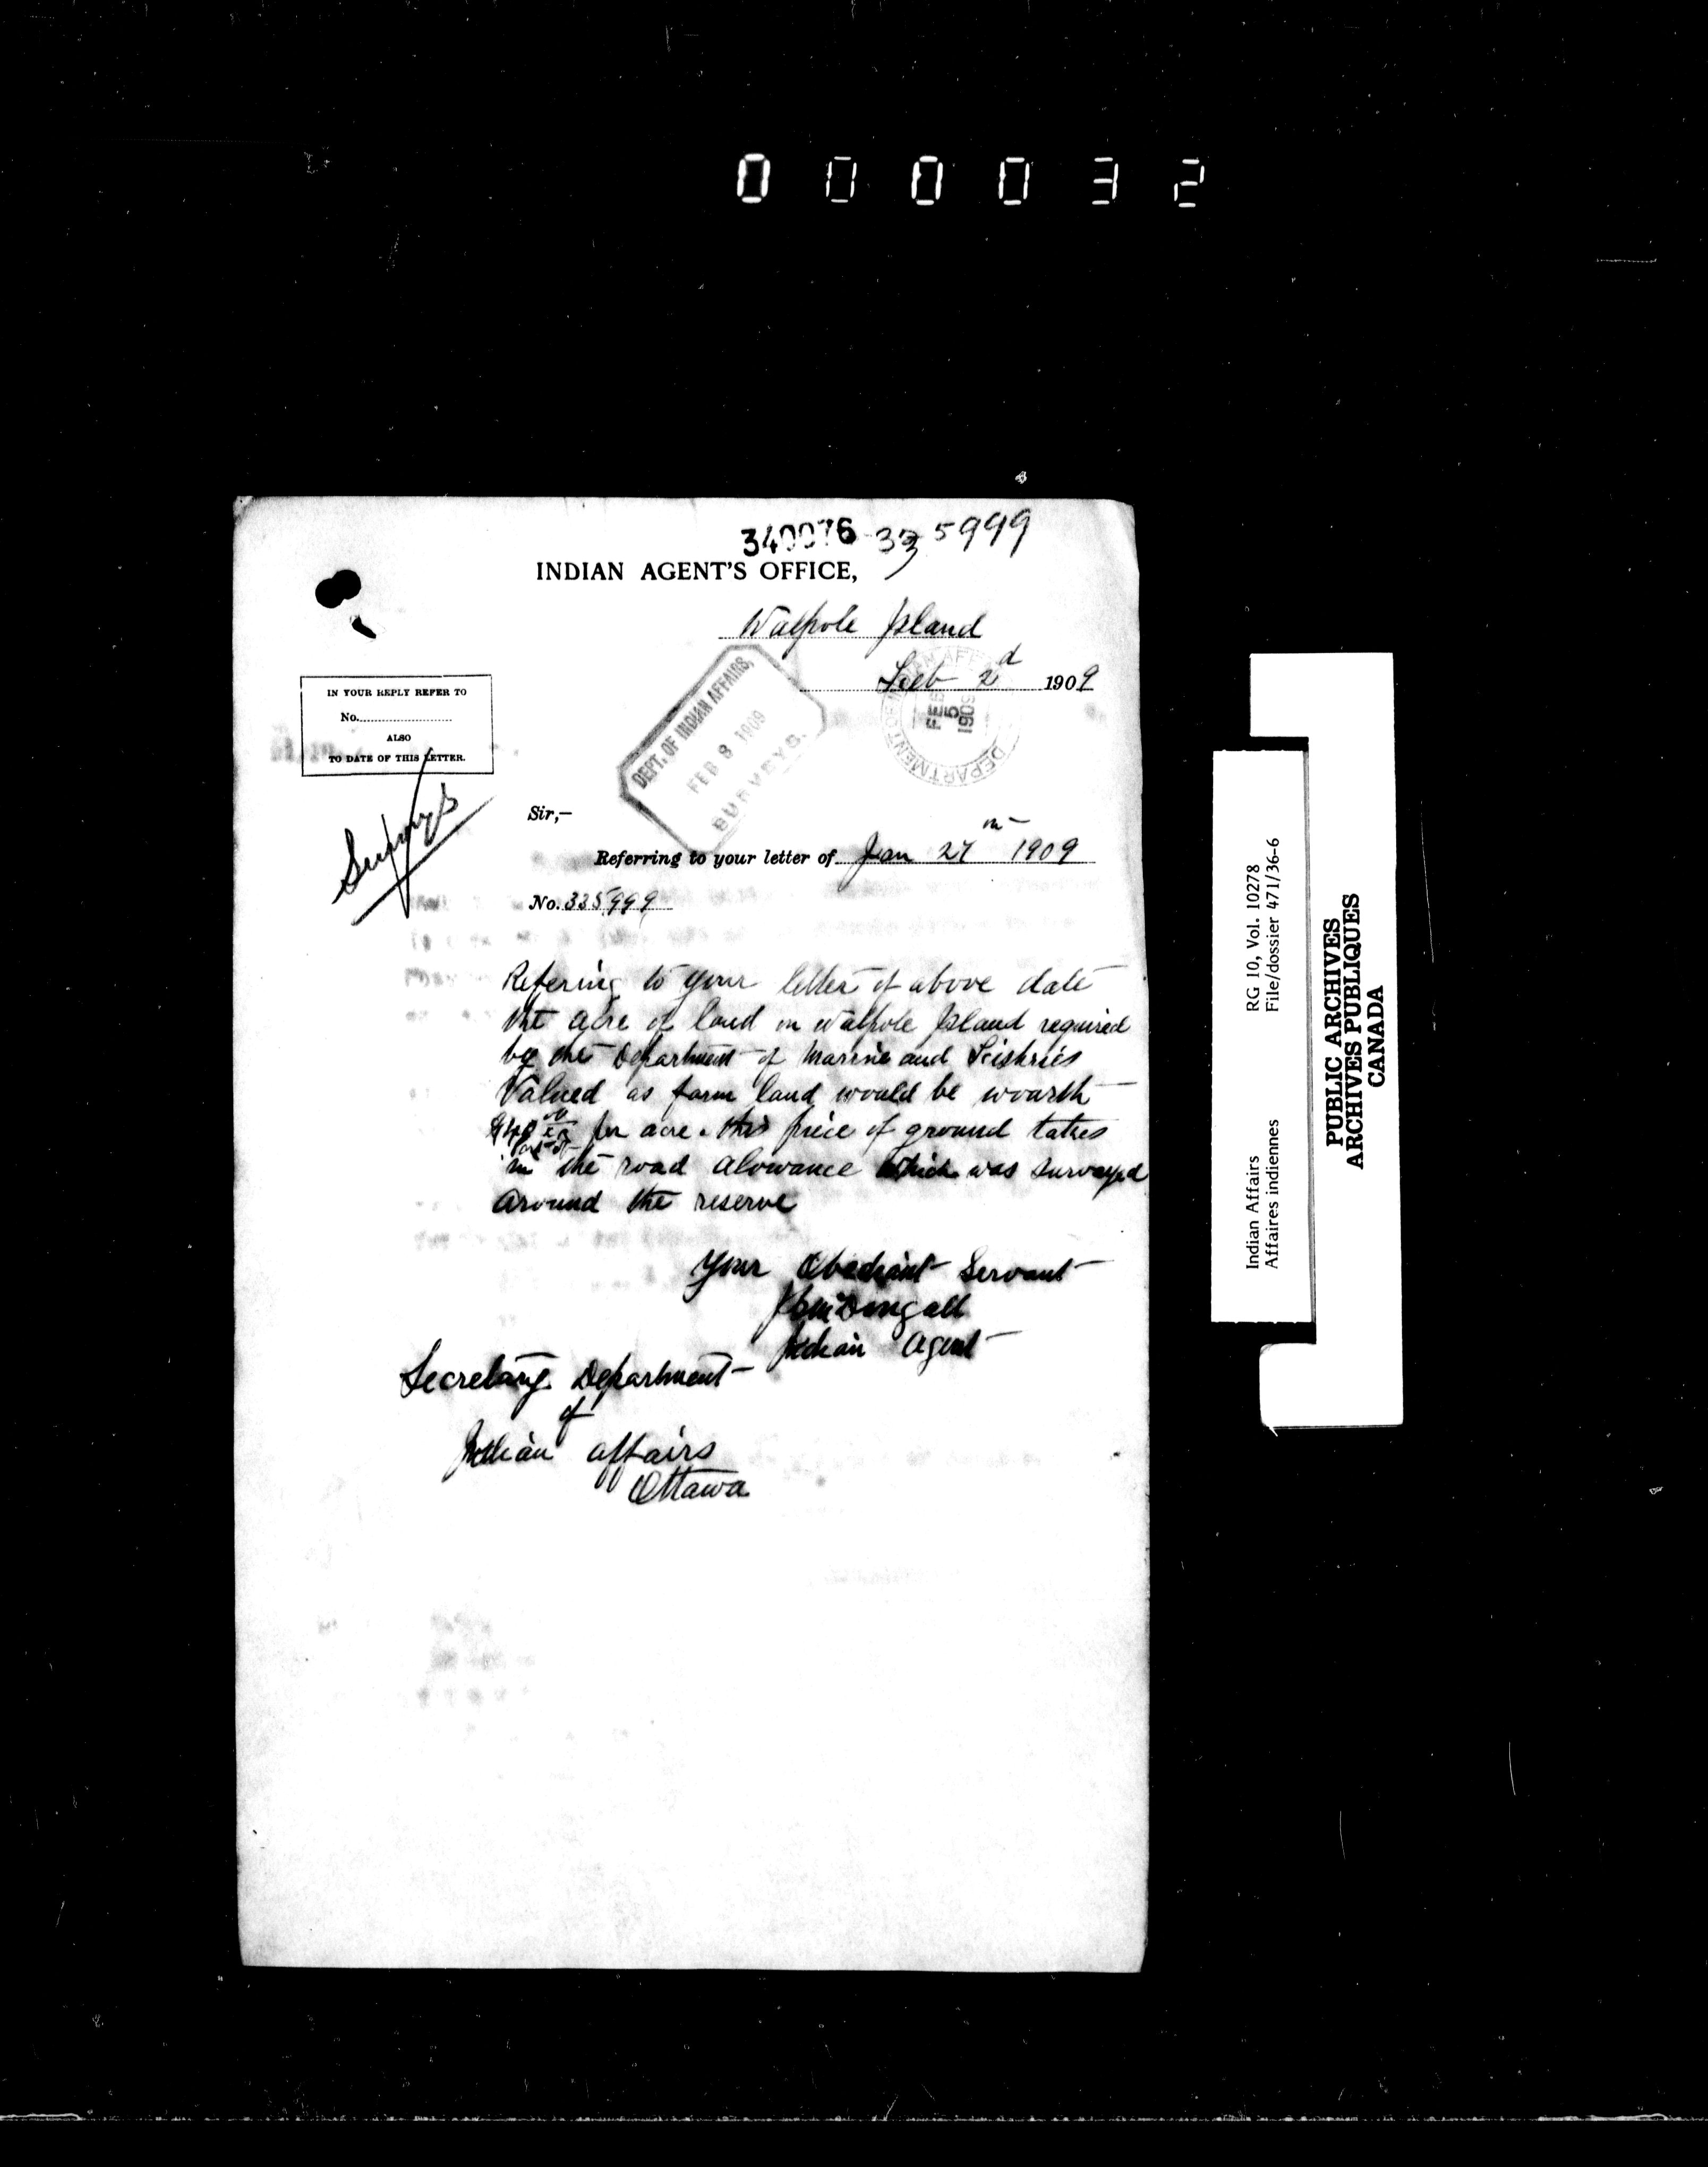 000032
340076 335999
INDIAN AGENT'S OFFICE,
Walpole Island
Feb 2d 1909
IN YOUR REPLY REFER TO
No.
ALSO
TO DATE OF THIS LETTER.
DEPT. OF INDIAN AFFAIRS,
FEB 8 1909
SURVEYS.
DEPARTMENT OF INDIAN AFFAIRS
FEB
5
1909
Surveys
Sir,—
Referring to your letter of Jan 27th 1909
No. 335999
Refering to your letter of above date
the acre of land on Walpole Island required
by the Department of Marine and Fishries
Valued as farm land would be wourth
per acre. this piece of ground takes
in part of the road alowance which was surveyed
around the reserve
Your Obediant Servant
McDougall
Indian Agent
Secretary Department
of
Indian affairs
Ottawa
Indian Affairs RG 10, Vol. 10278
Affaires indiennes File/dossier 471/36-6
PUBLIC ARCHIVES
ARCHIVES PUBLIQUES
CANADA